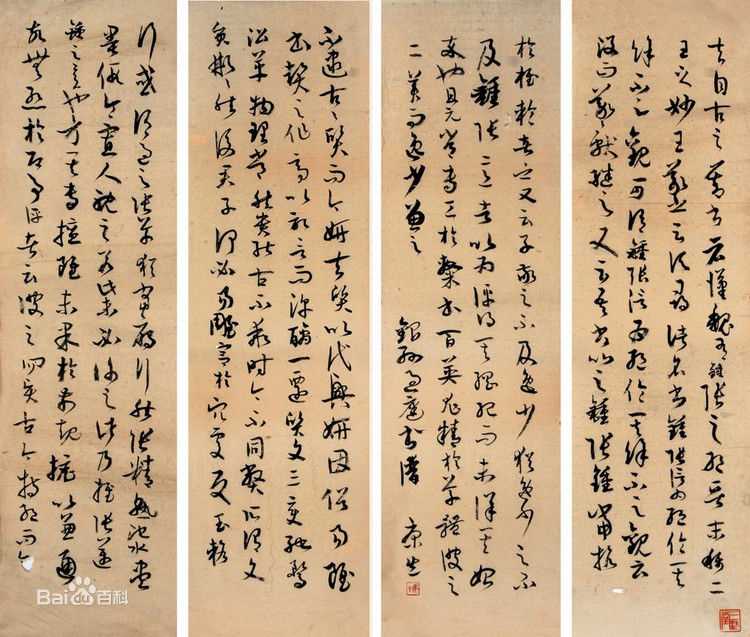 夫自古之善書者漢魏有鍾張之絕晉末稱二
王之妙王羲之云頃尋諸名書鍾張信為絕倫其
餘不足觀可謂鍾張信為絕倫其餘不足觀云
沒而羲獻繼之又云吾書比之鍾張鍾當抗
行或謂過之張草猶當雁行然張精熟池水盡
墨假令寡人耽之若此未必謝之此乃推張邁
鍾之意也考其專擅雖未果於前規摭以兼通
故無慚於即事評者云彼之四賢古今特絕而今
不逮古古質而今妍夫質以代興妍因俗易雖
書契之作適以記言而淳醨一遷質文三變馳騖
沿革物理常然貴能古不乖時今不同弊所謂文
質彬彬然後君子何必易雕宮於穴處反玉輅
於椎輪者乎又云子敬之不及逸少猶逸少之不
及鍾張意者以為評得其綱紀而未詳其始
卒也且元常專工於隸書百英尤精於草體彼之
二美而逸少兼之
孫過庭書譜 康生
Bai百科